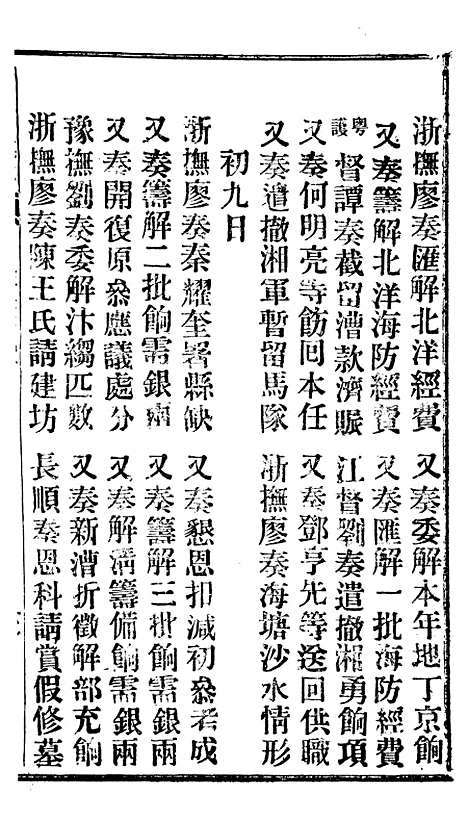 浙撫廖奏匯解北洋經費　又奏委解本年地丁京餉
又奏籌解北洋海防經費　又奏匯解一批海防經費
護粵督譚奏截留漕款濟賑　江督劉奏遣撤湘勇餉項
又奏何明亮等飭回本任　又奏鄧亨先等送回供職
又奏遣撤湘軍暫留馬隊　浙撫廖奏海塘沙水情形
初九日
浙撫廖奏秦耀奎署縣缺　又奏懇恩扣減初參考成
又奏籌解二批餉需銀兩　又奏籌解三批餉需銀兩
又奏開復原參應議處分　又奏解清籌備餉需銀兩
豫撫劉奏委解汴縐匹數　又奏新漕折徵解部充餉
浙撫廖奏陳王氏請建坊　長順奏恩科請賞假修墓